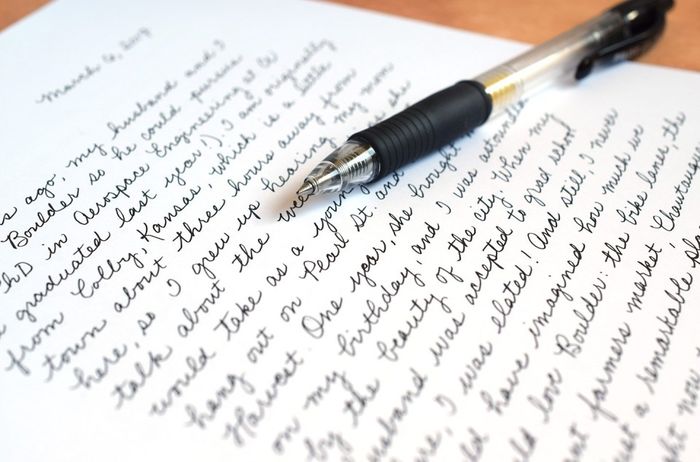 March 6, 2019
ago, my husband and I
Boulder so he could pursue
PhD in Aerospace Engineering at CU
graduated last year!). I am originally
from Colby, Kansas, which is a little
town about three hours away from
here, so I grew up hearing my mom
talk about the she
would take as a young
hang out on Pearl St. and
Harvest. One year, she brought
on my birthday, and I was astounded
by the beauty of the city. When my
husband was accepted to grad school
I was elated! And still, I never
have imagined how much we
love Boulder: the bike lanes, the
farmers market, Chautau
a remarkable